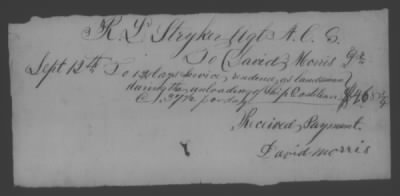 R. L. Stryker Agt A. C. S.
To David Morris Dr
Sept 12th To days service, rendered, as landsman
during the unloading of Ship
@ 37½ per day $4 68
Received, Payment.
David Morris